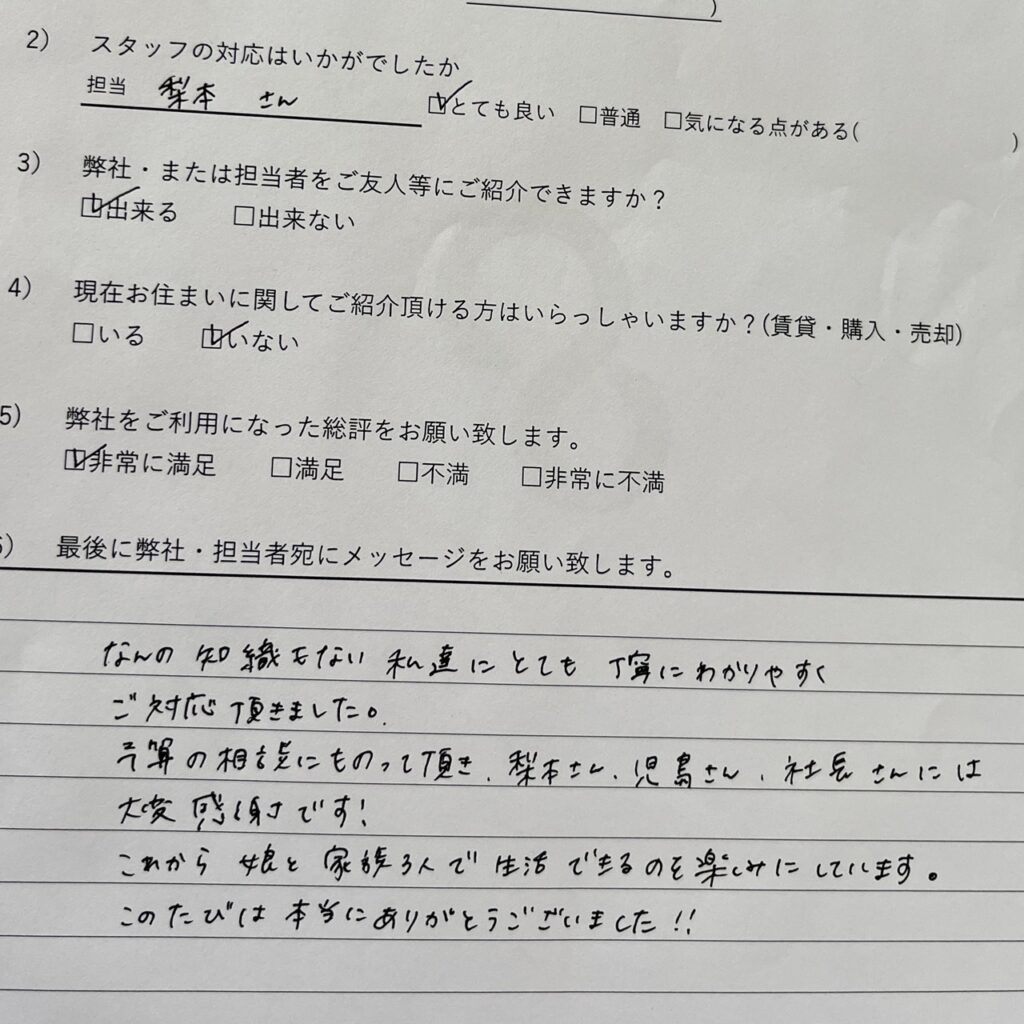 )
2) スタッフの対応はいかがでしたか
担当 梨本 さん ☑とても良い □普通 □気になる点がある( )
3) 弊社・または担当者をご友人等にご紹介できますか？
☑出来る □出来ない
4) 現在お住まいに関してご紹介頂ける方はいらっしゃいますか？(賃貸・購入・売却)
□いる ☑いない
5) 弊社をご利用になった総評をお願い致します。
☑非常に満足 □満足 □不満 □非常に不満
6) 最後に弊社・担当者宛にメッセージをお願い致します。
なんの知識もない私達にとても丁寧にわかりやすく
ご対応頂きました。
予算の相談にものって頂き、梨本さん、児島さん、社長さんには
大変感謝です！
これから娘と家族3人で生活できるのを楽しみにしています。
このたびは本当にありがとうございました！！